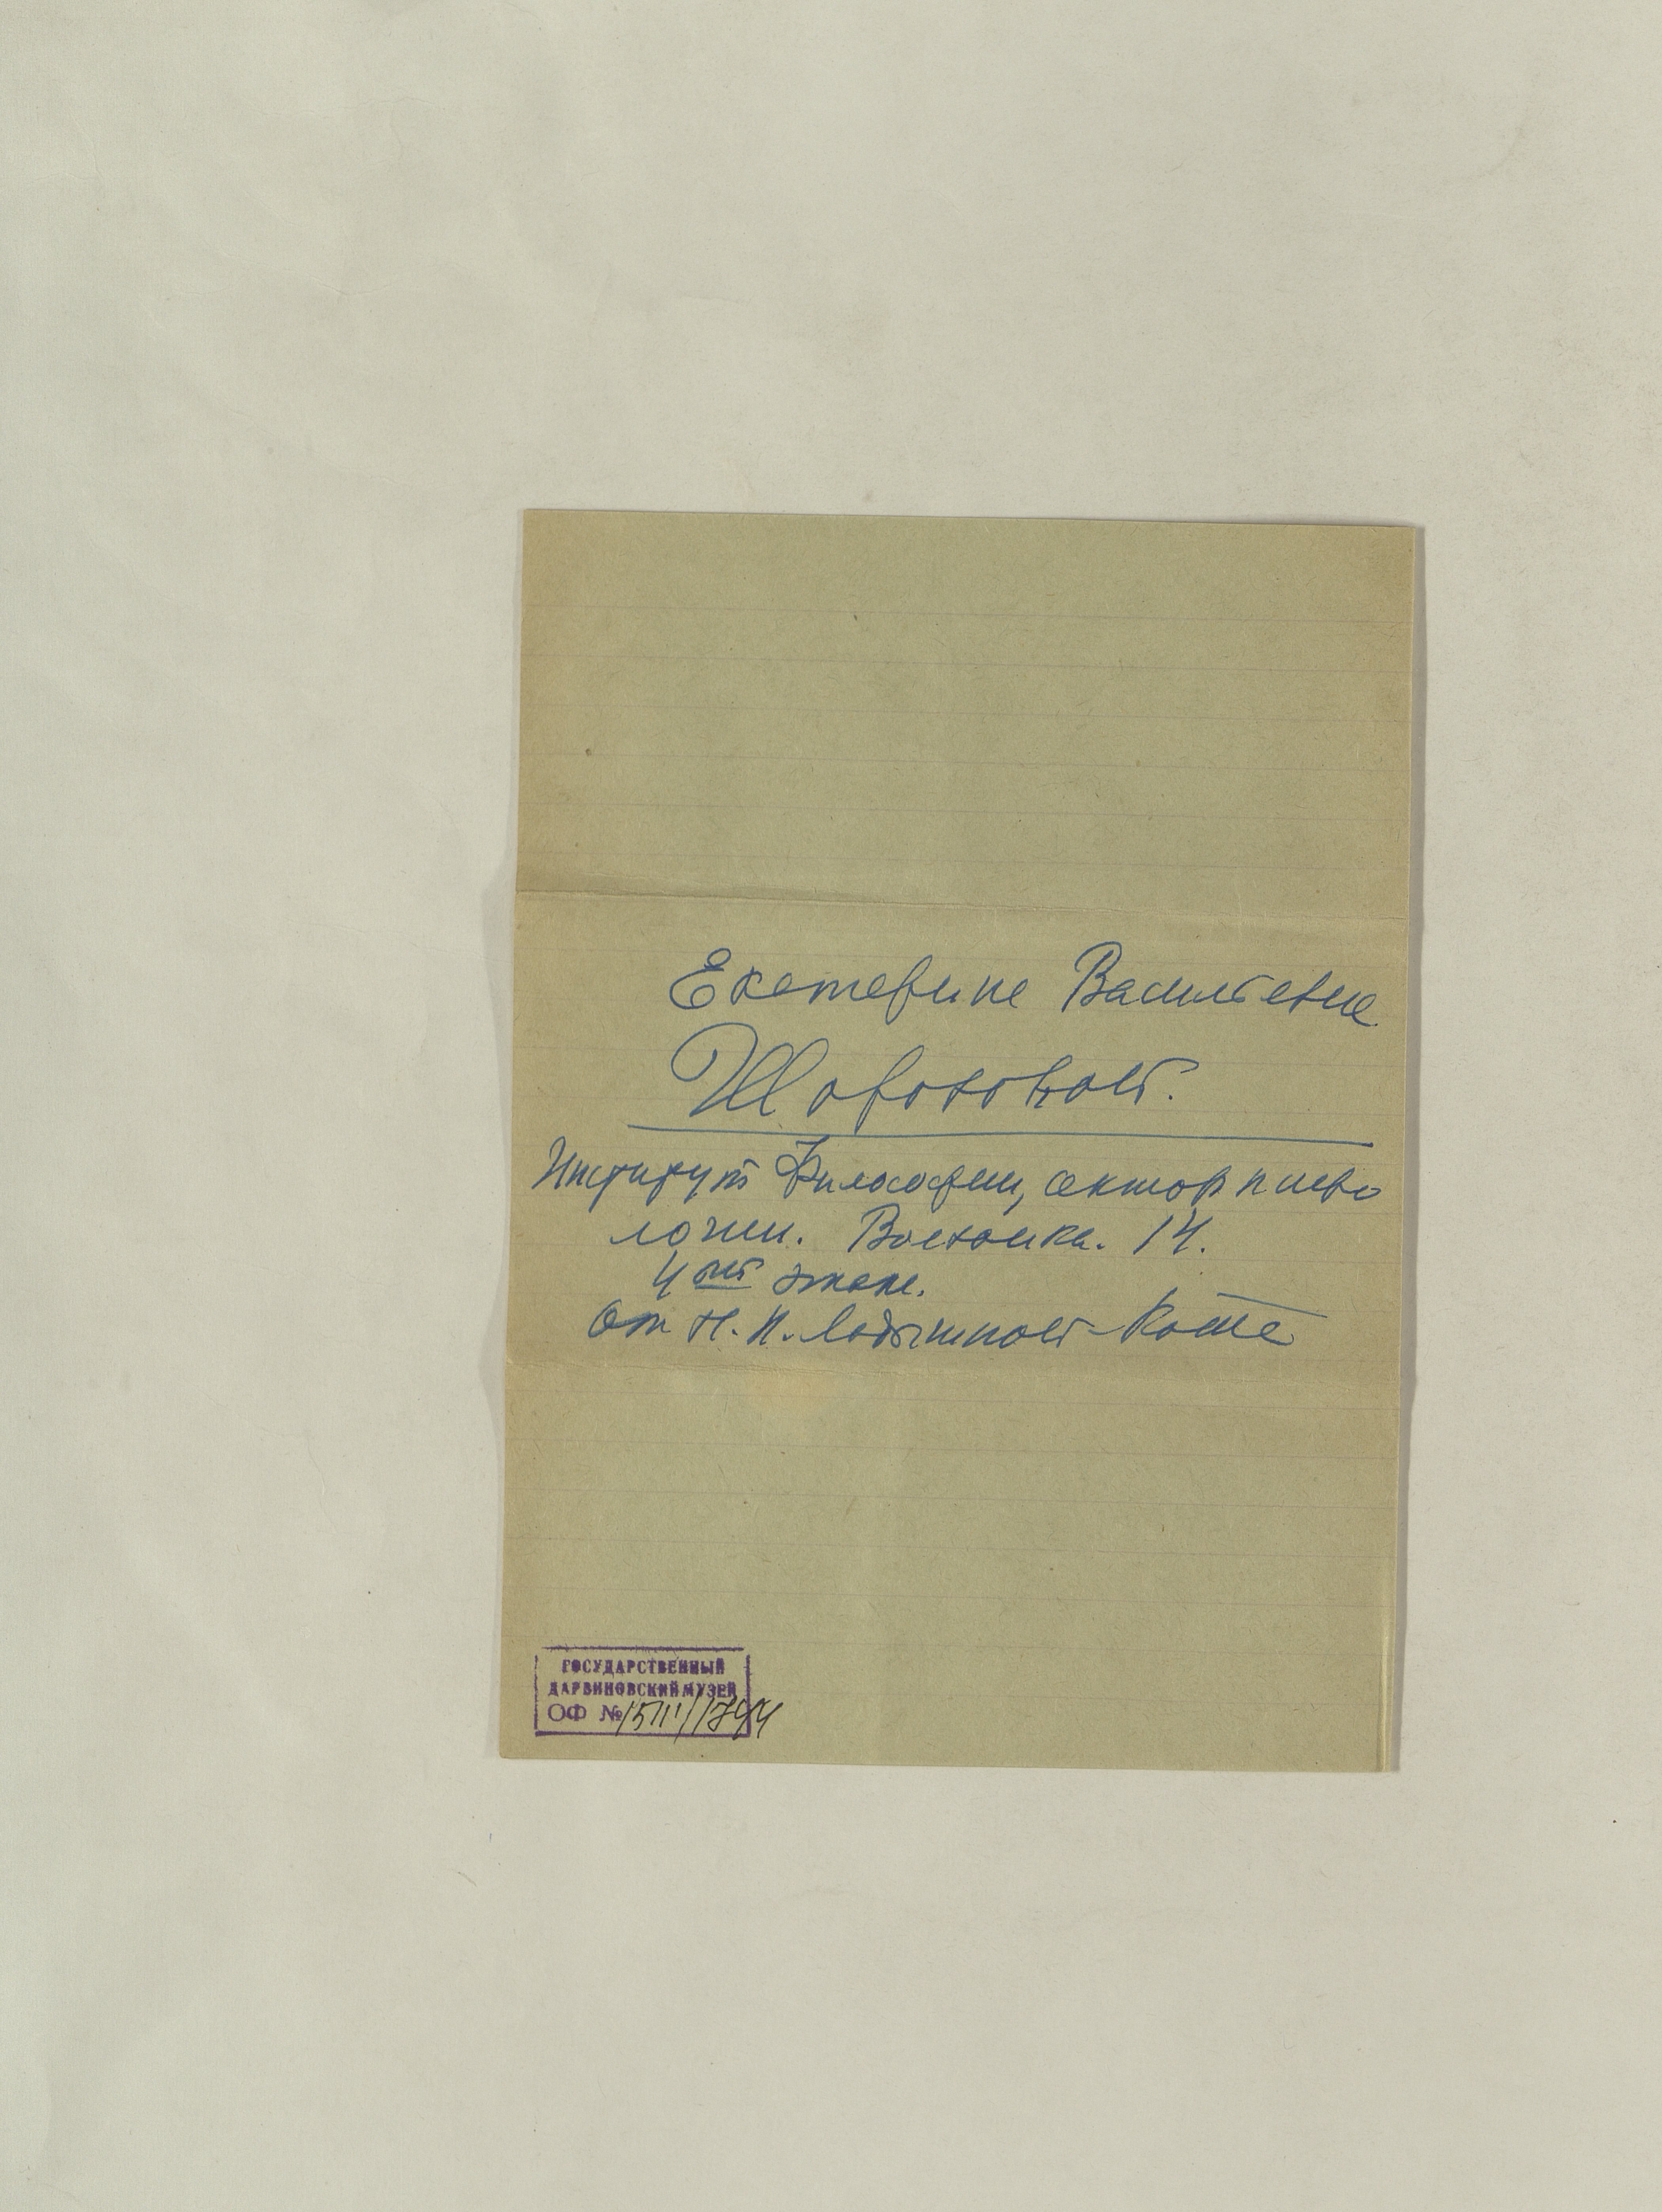 Екатерине Васильевне
Шороховой.
Институт Философии, сектор психо
логии. Волхонка. 14.
4ый этаж.
От Н. Н. Ладыгиной-Котс
ГОСУДАРСТВЕННЫЙ
ДАРВИНОВСКИЙ МУЗЕЙ
ОФ №